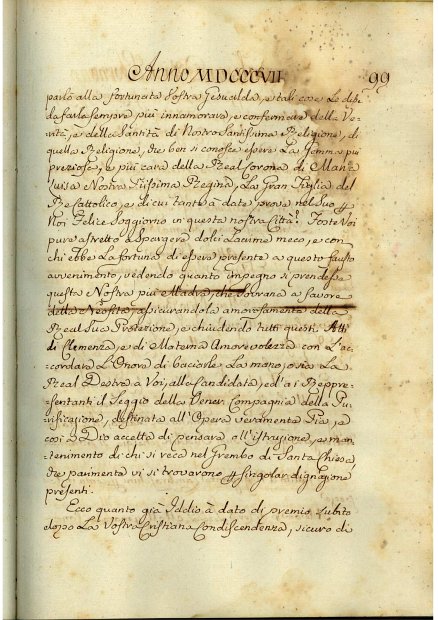 Anno MDCCCVII
99
parlò alla fortunata Vostra Gesualda, e tali cose Le disse
da farla sempre più innamorare, e confermare della Ve-
rità, e della Santità di Nostra Santissima Religione, di
quella Religione, che ben si conosce essere La Gemma più
preziosa, e più cara della Real Corona di Maria
Luisa Nostra Piissima Regina, La Gran Figlia del
Re Cattolico, e di cui tante à date prove nel Suo p
Noi Felice Soggiorno in questa nostra Città! Foste Voi
pure astretto a Spargere dolci Lacrime meco, e con
chi ebbe La fortuna di essere presente a questo fausto
avvenimento, vedendo quanto impegno si prendesse
questa Nostra più Madre, che Sovrana a favore
della Neofita, assicurandola amorosamente della
Real Sua Protezione, e chiudendo tutti questi Atti
di Clemenza, e di Materna Amorevolezza con L'ac-
cordare L'Onore di baciarle La mano, o sia La
Real Destra a Voi, alla Candidata, ed a' i Reppre-
sentanti il Seggio della Vener. Compagnia della Pu-
rificazione, destinata all'Opera veramente Pia, e
così a Dio accetta di pensare all'istruzione, e man-
tenimento di chi si reca nel Grembo di Santa Chiesa,
che parimente vi si trovarono p singolar dignazione
presenti.
Ecco quanto già Iddio à dato di premio subito
dopo La Vostra Cristiana Condiscendenza, sicuro di